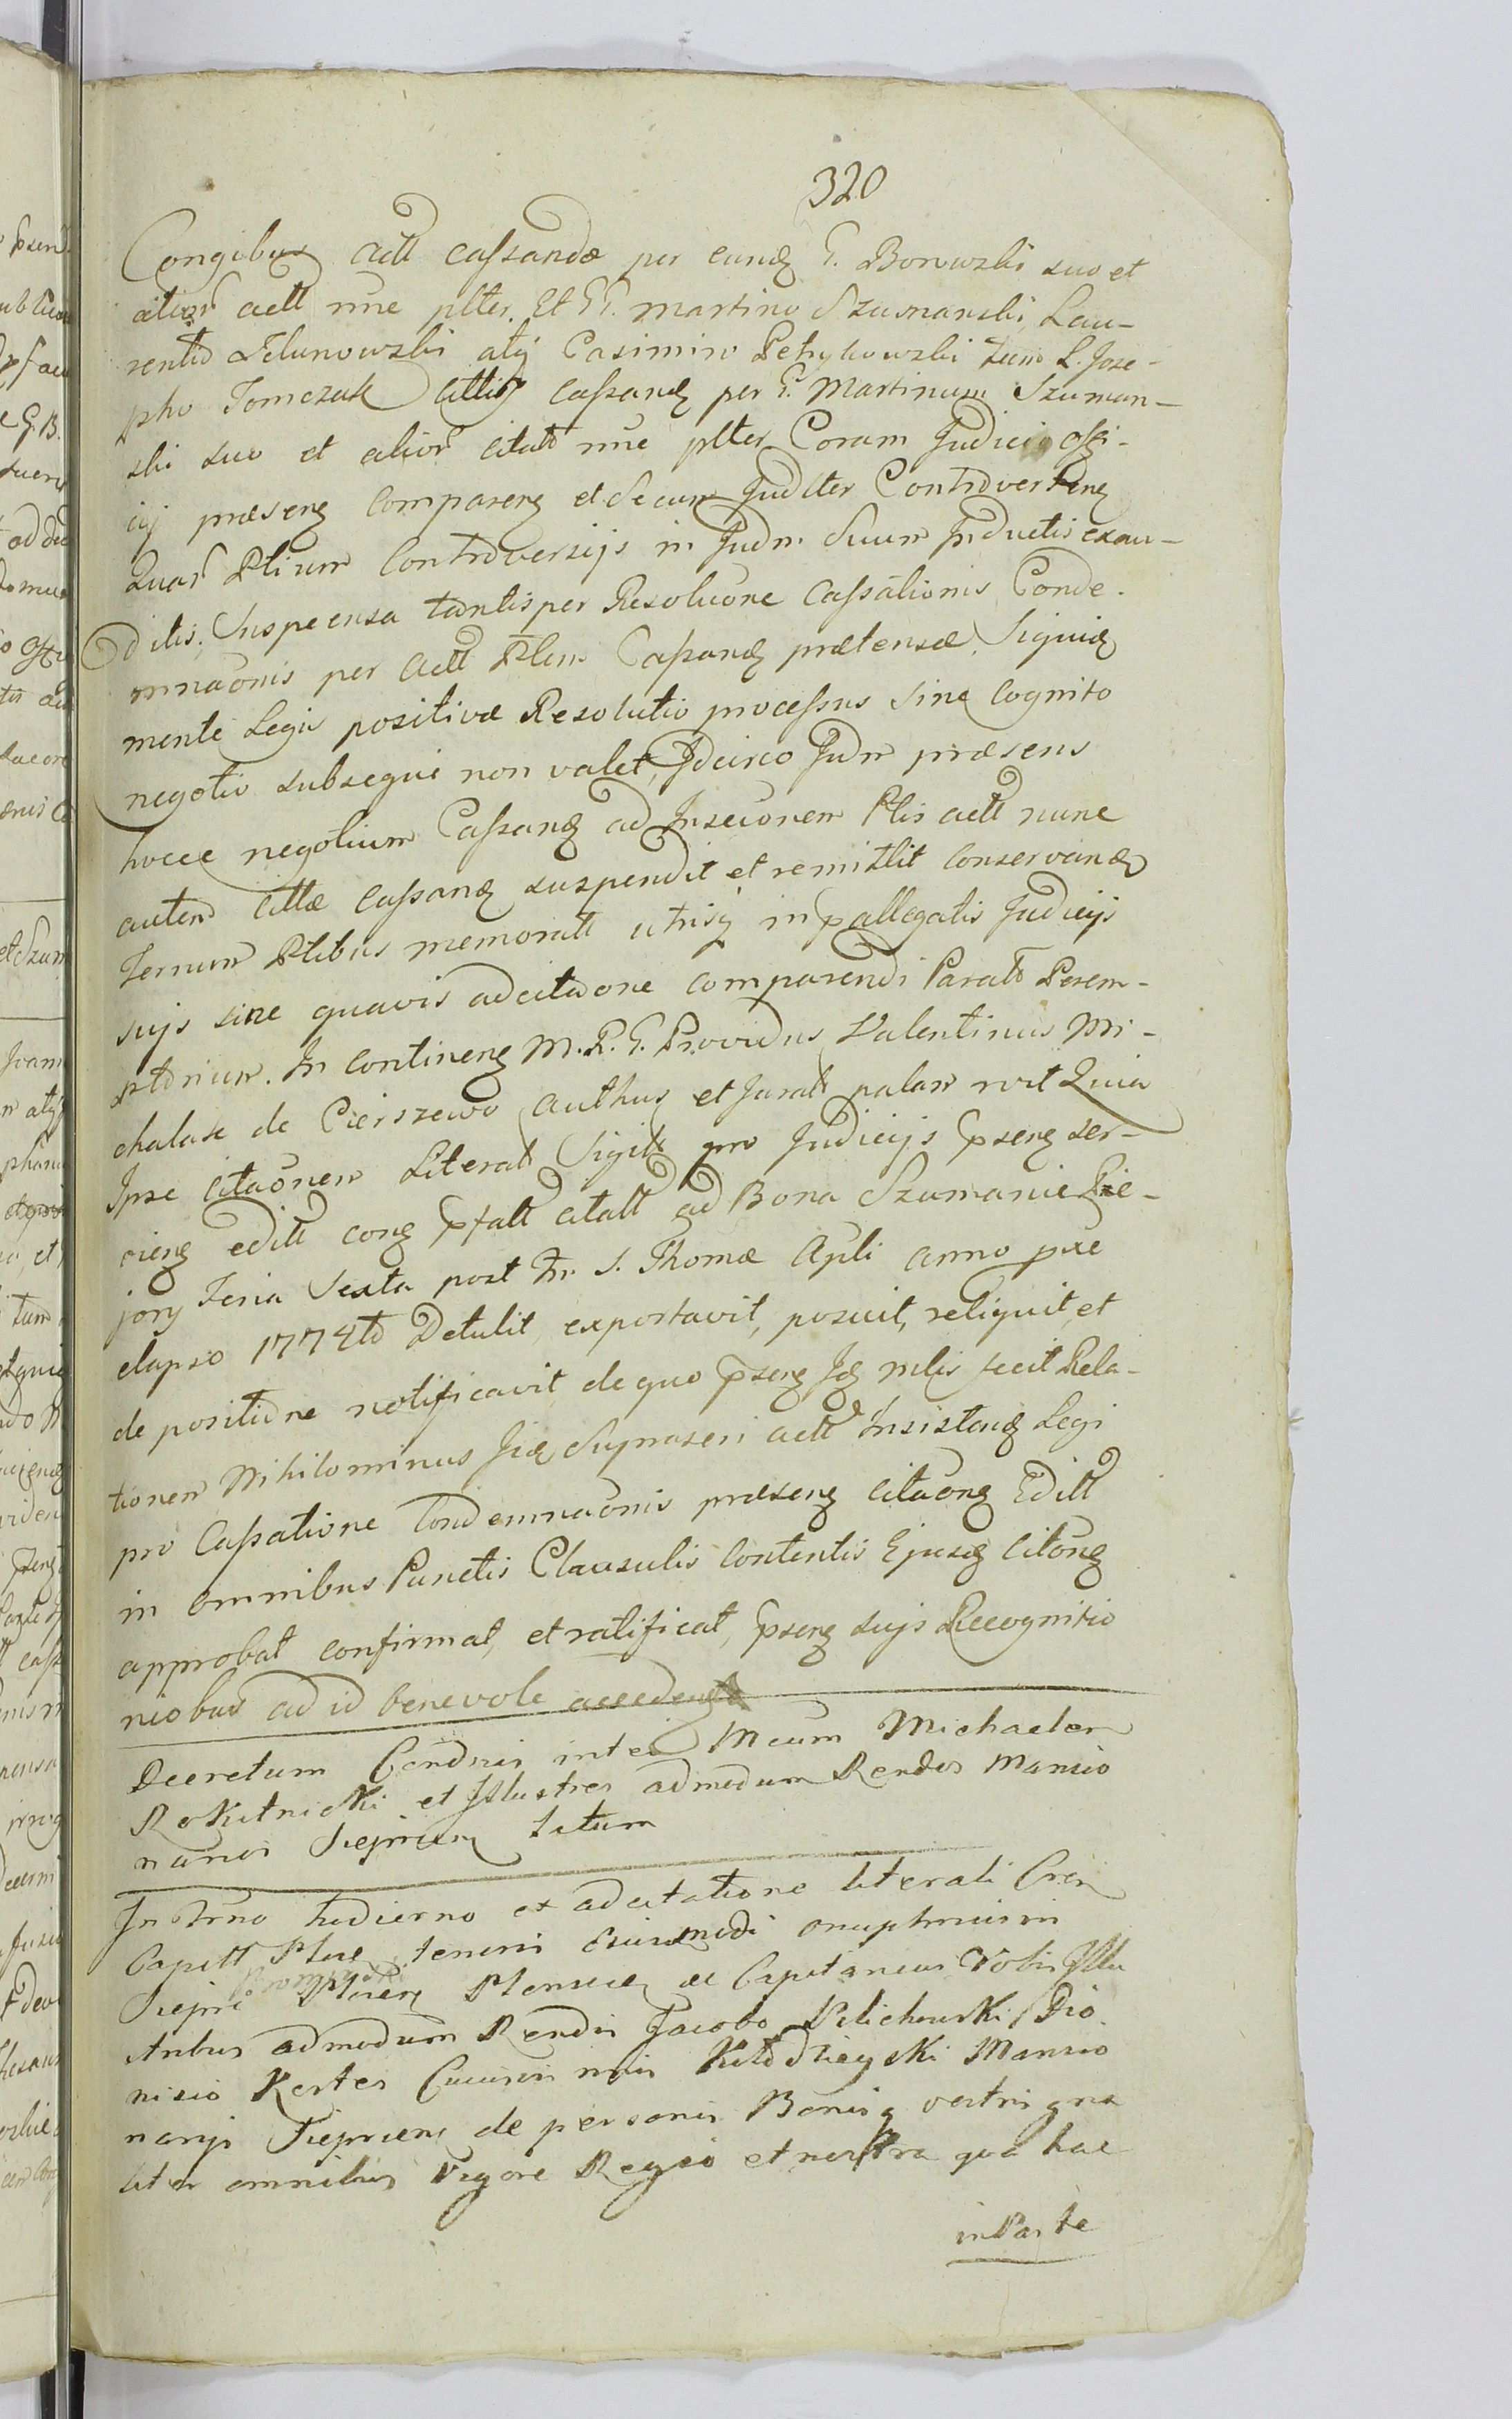 320
Congibus actt cassandæ per eund G. Borowski suo et
alior actt nne plter. Et GG. Martino Szumanski, Lau-
rentio Zelunowski atq Casimiro Petrykowski tum L. Jose-
pho Tomczak cittis cassand per G. Martinum Szuman-
ski suo et alior citatt nne plter Coram Judicio offi-
cij præsenz comparenz et secum Judlter Controvertenz
Quar Ptium Controversijs in Judm Suum Inductis exau-
ditis, Suspensa tantisper Resoluone Cassationis Conde-
mnaonis per actt Ptem Cassand prætensæ, Siquid
mente Legis positivæ Resolutio processus sine cognito
negotio subsequi non valet, Idcirco Judm præsens
hocce negotium Cassand ad Insecuonem Ptis actt nunc
autem cittæ cassand suspendit et remittit conservand
Termum Ptibus memoratt utrisq in pallegatis Judicijs
sujs sine quavis adcitaone comparendi Paratt Perem-
ptorium. In continenz M. R. G. Providus Valentinus Mi-
chalak de Cierszewo authus et Juratt palam rvit Quia
Ipse citaonem Literatt Sigitt pro Judicijs psenz ser-
vienz editt conz pfatt citatt ad Bona Szumanie Pie-
jory Feria Sexta post Fm S. Thomæ Apli anno præ
elapso 1774to Detulit, exportavit, posuit, reliquit, et
de positione notificavit, de quo psenz Jd mlis fecit Rela-
tionem Nihilominus Jud Supraseri actt Insistend Legi
pro Cassatione Condemnaonis præsenz citaonz Editt
in omnibus Punctis Clausulis Contentis Ejusq Citonz
approbat confirmat, et ratificat, psenz sujs Recognitio
niobus ad id benevole accedenz
Decretum Condnis inter Mcum Michaelem
Rokitnicki et Illustres admodum Rendos Mansio
narios Sieprien latum
In Trno hodierno ex adcitatione literali Cren
Capitt Plne tenoris eiusmodi Onuphrius in
Siepri Plocen Plonscen &c Capitaneus Vobis Illu
stribus admodum Rendis Jacobo Pilichowski, Dio
nisio Kestes Kołodzieyski Mansio
narijs Sieprien de personis Bonisq vestris gna
liter omnibus Vigore Regio et nostra qua hac
in Parte